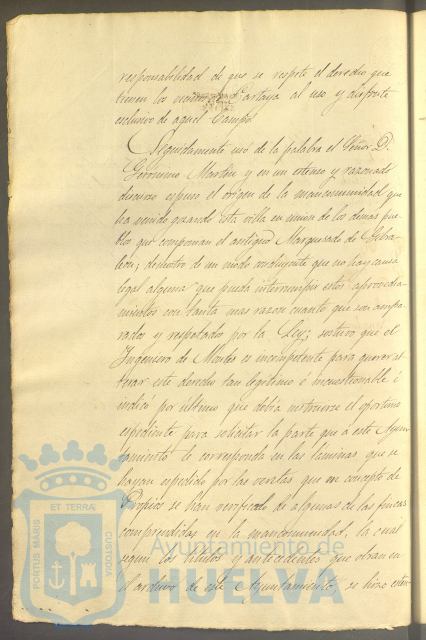 responsabilidad de que se respete el derecho que
tienen los vecinos de Cartaya al uso y disfrute
esclusivo de aquel Campo.
Seguidamente uso de la palabra el Señor D.
Gerónimo Martin y en un estenso y razonado
discurso espuso el origen de la mancomunidad que
ha venido gozando esta villa en union de los demas pue
blos que componian el antiguo Marquesado de Gibra
leon; demostró de un modo concluyente que no hay causa
legal alguna que pueda interrumpir estos aprovecha
mientos con tanta mas razon cuanto que son ampa
rados y respetados por la Ley; sostuvo que el
Ingeniero de Montes es incompetente para querer al
terar este derecho tan legítimo é incuestionable é
indicó por último que debia instruirse el oportuno
espediente para solicitar la parte que á este Ayun
tamiento le corresponda en las laminas que se
hayan espedido por las ventas que en concepto de
Propios se han verificado de algunas de las fincas
comprendidas en la mancomunidad, la cual
segun los titulos y antecedentes que obran en
el archivo de este Ayuntamiento, se hizo esten
PORTUS MARIS ET TERRAE CUSTODIA
Ayuntamiento de
HUELVA